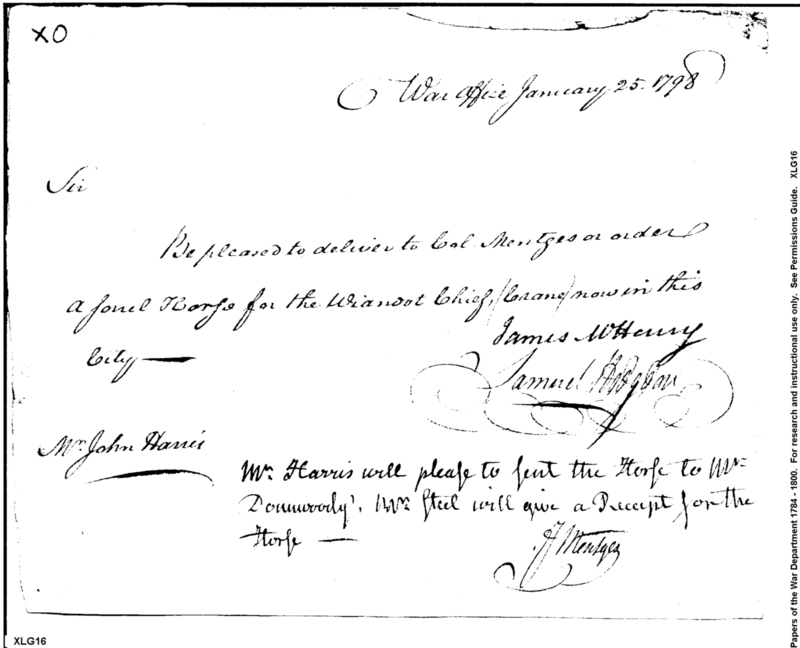 XO
War Office January 25. 1798
Sir
Be pleased to deliver to Col. Mentges or order
a sorrel Horse for the Wiandot Chief, (Crane) now in this
City —
James McHenry
Samuel Hodgdon
Mr. John Harris
Mr. Harris will please to sent the Horse to Mr.
Dunwoody's, Mr. Steel will give a Receipt for the
Horse —
F Mentges
XLG16
Papers of the War Department 1784 - 1800. For research and instructional use only. See Permissions Guide. XLG16